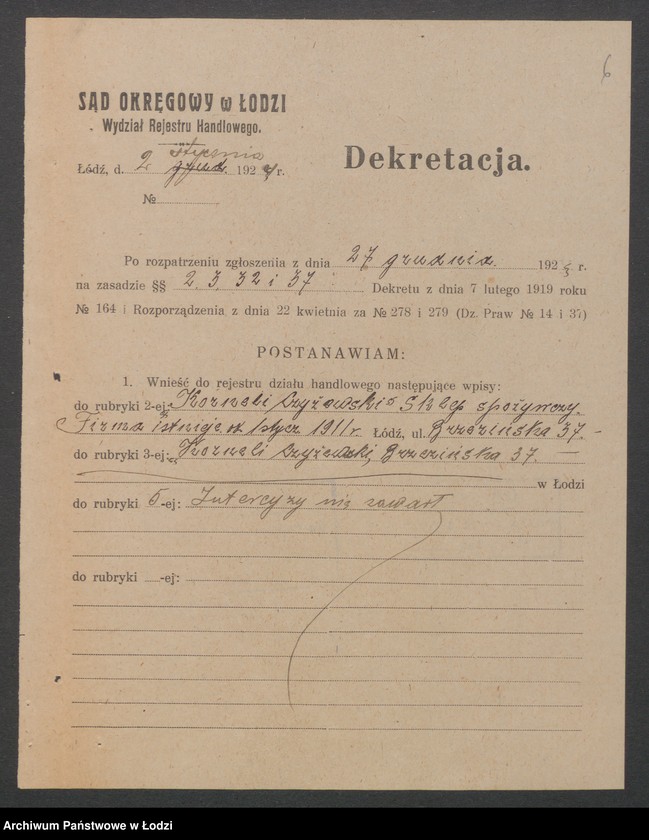 6
SĄD OKRĘGOWY w ŁODZI
Wydział Rejestru Handlowego.
stycznia
Łódź, d. 2 grud. 1924 r.
Dekretacja.
№
Po rozpatrzeniu zgłoszenia z dnia 27 grudnia 1923 r.
na zasadzie §§ 2, 3, 32 i 37 Dekretu z dnia 7 lutego 1919 roku
№ 164 i Rozporządzenia z dnia 22 kwietnia za № 278 i 279 (Dz. Praw № 14 i 37)
POSTANAWIAM:
1. Wnieść do rejestru działu handlowego następujące wpisy:
do rubryki 2-ej: „Korneli Czyżewski" Sklep spożywczy.
Firma istnieje od 1 stycz. 1911 r. Łódź, ul. Brzezińska 37. –
do rubryki 3-ej: Korneli Czyżewski, Brzezińska 37. –
w Łodzi
do rubryki 5-ej: Intercyzy nie zawarł
do rubryki -ej:
Archiwum Państwowe w Łodzi